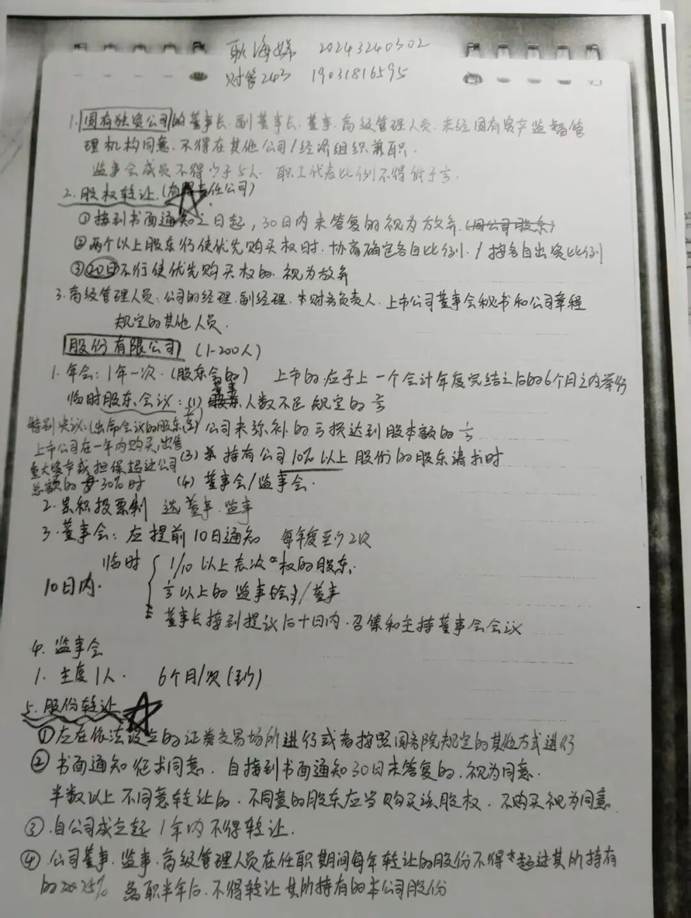 耿海娣 20243240302
财管243 19031816595
1.国有独资公司的董事长、副董事长、董事、高级管理人员,未经国有资产监督管
理机构同意,不得在其他公司/经济组织兼职.
监事会成员不得少于5人. 职工代表比例不得低于⅓.
2.股权转让.(有限责任公司)
①接到书面通知之日起,30日内未答复的视为放弃.
②两个以上股东行使优先购买权时.协商确定各自比例./按各自出资比例
③20日不行使优先购买权的.视为放弃
3.高级管理人员:公司的经理.副经理.财务负责人.上市公司董事会秘书和公司章程
规定的其他人员.
股份有限公司 (1-200人)
1.年会:1年一次.(股东会的) 上市的.应于上一个会计年度完结之后的6个月之内举行
临时股东会议:(1)董事人数不足规定的⅔
特别决议:(出席会议的股东⅔) (2)公司未弥补的亏损达到股本额的⅓
上市公司在一年内购买、出售
重大资产或担保超过公司 (3) 持有公司10%以上股份的股东请求时
总额的30%时 (4) 董事会/监事会.
2.累积投票制 选董事.监事
3.董事会:应提前10日通知 每年度至少2次
临时 1/10以上表决权的股东.
10日内. ⅓以上的监事会/董事
董事长接到提议后十日内.召集和主持董事会会议
4.监事会
1. 主席1人. 6个月/次(至少)
5.股份转让
①应在依法设立的证券交易场所进行或者按照国务院规定的其他方式进行
②书面通知征求同意.自接到书面通知30日未答复的.视为同意.
半数以上不同意转让的.不同意的股东应当购买该股权.不购买视为同意
③.自公司成立起1年内不得转让.
④公司董事、监事、高级管理人员在任职期间每年转让的股份不得超过其所持有
的25% 离职半年后.不得转让其所持有的本公司股份